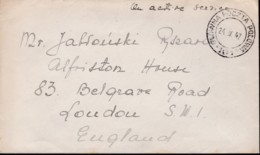 On active service
Mr. Jabłoński Ryszard
Alfriston House
83. Belgrave Road
London S.W.1.
England
POCZTA POLOWA